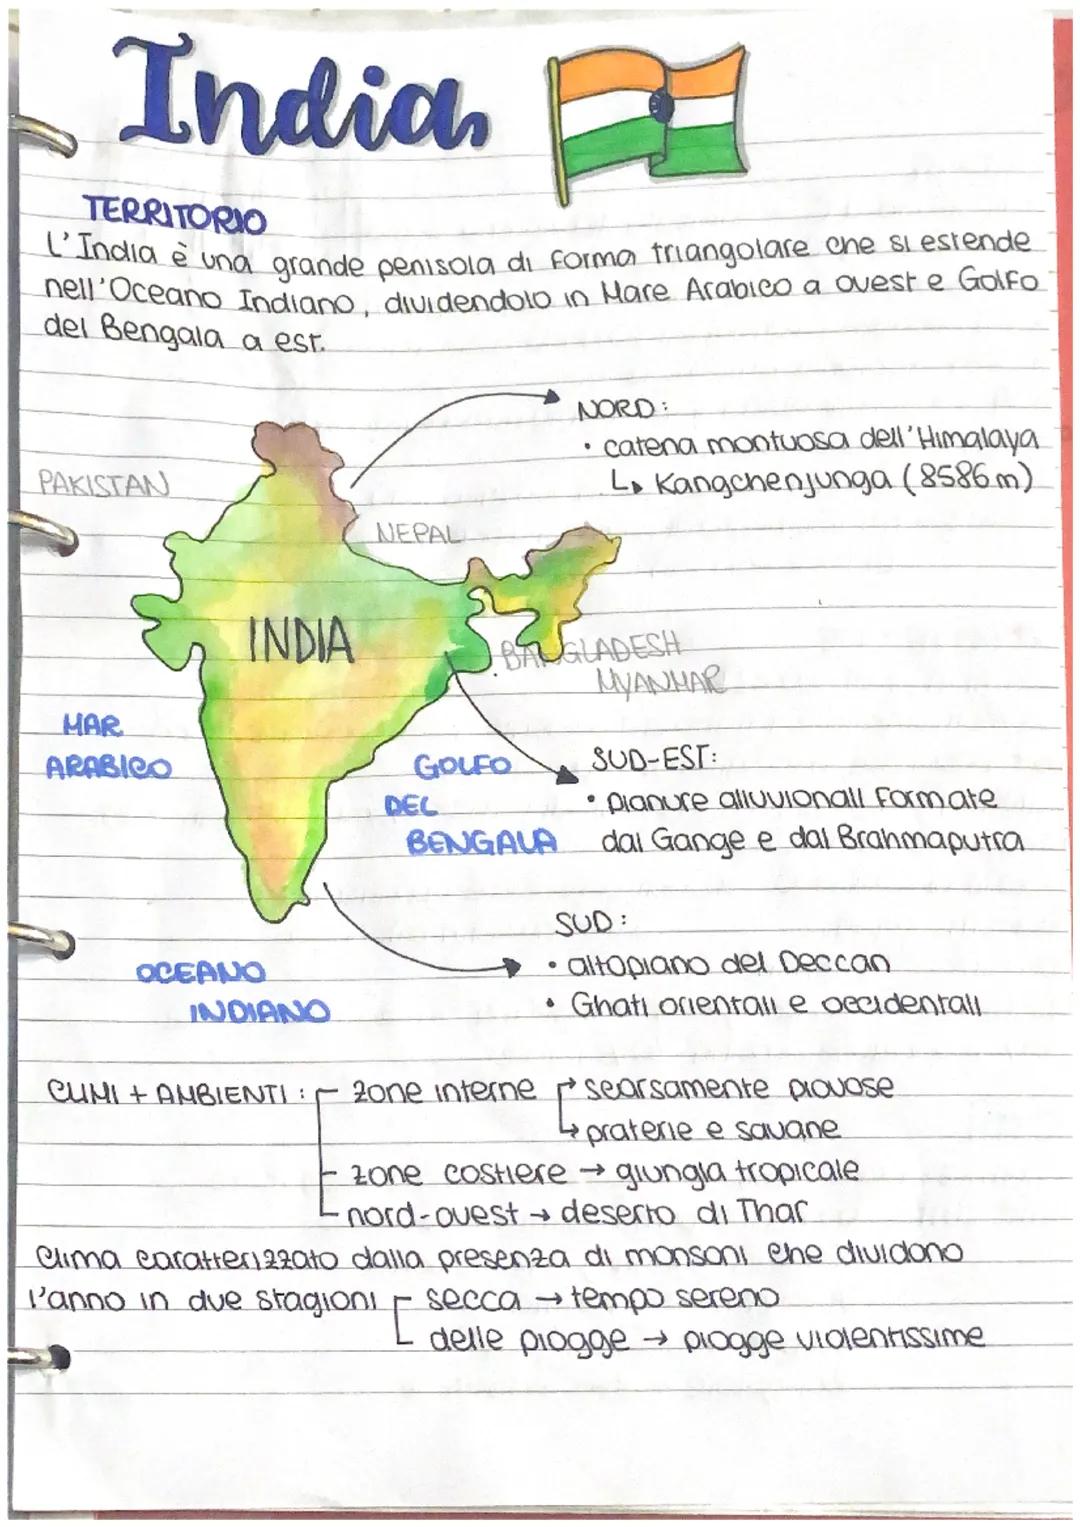 India
TERRITORIO
L'India è una grande penisola di forma triangolare che si estende
nell'Oceano Indiano, dividendolo in Mare Arabico a ovest e Golfo
del Bengala a est.
NORD:
• catena montuosa dell'Himalaya
↳ Kangchenjunga (8586 m)
PAKISTAN
NEPAL
INDIA
BANGLADESH
MYANMAR
MAR
ARABICO
GOLFO
DEL
BENGALA
SUD-EST:
• pianure alluvionali formate
dal Gange e dal Brahmaputra
SUD:
• altopiano del Deccan
• Ghati orientali e occidentali
OCEANO
INDIANO
CLIMI + AMBIENTI: zone interne → scarsamente piovose
↳ praterie e savane
zone costiere → giungla tropicale
nord-ovest → deserto di Thar
Clima caratterizzato dalla presenza di monsoni che dividono
l'anno in due stagioni secca → tempo sereno
delle piogge → piogge violentissime